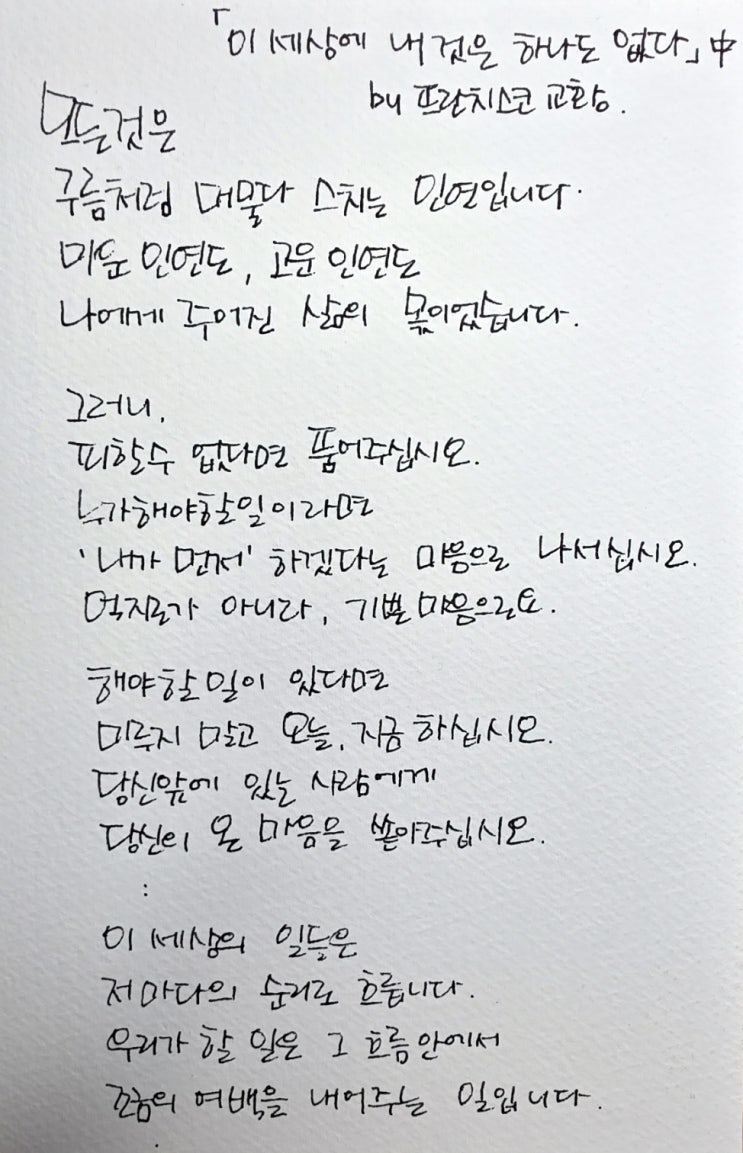 「이 세상에 내 것은 하나도 없다」中
by 프란치스코 교황.
모든것은
구름처럼 머물다 스치는 인연입니다.
미운 인연도, 고운 인연도
나에게 주어진 삶의 몫이었습니다.
그러니,
피할수 없다면 품어주십시오.
누가해야할일이라면
'내가 먼저' 하겠다는 마음으로 나서십시오.
억지로가 아니라, 기쁜 마음으로요.
해야할 일이 있다면
미루지 말고 오늘, 지금 하십시오.
당신앞에 있는 사람에게
당신의 온 마음을 쏟아주십시오.
:
이 세상의 일들은
저마다의 순리로 흐릅니다.
우리가 할 일은 그 흐름안에서
조금의 여백을 내어주는 일입니다.